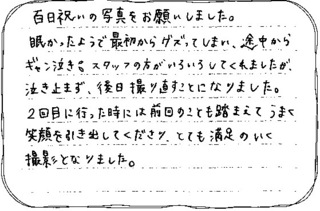 百日祝いの写真をお願いしました。
眠かったようで最初からグズってしまい、途中から
ギャン泣き。スタッフの方がいろいろしてくれましたが、
泣き止まず、後日撮り直すことになりました。
2回目に行った時には前回のことも踏まえてうまく
笑顔を引き出してくださり、とても満足のいく
撮影となりました。